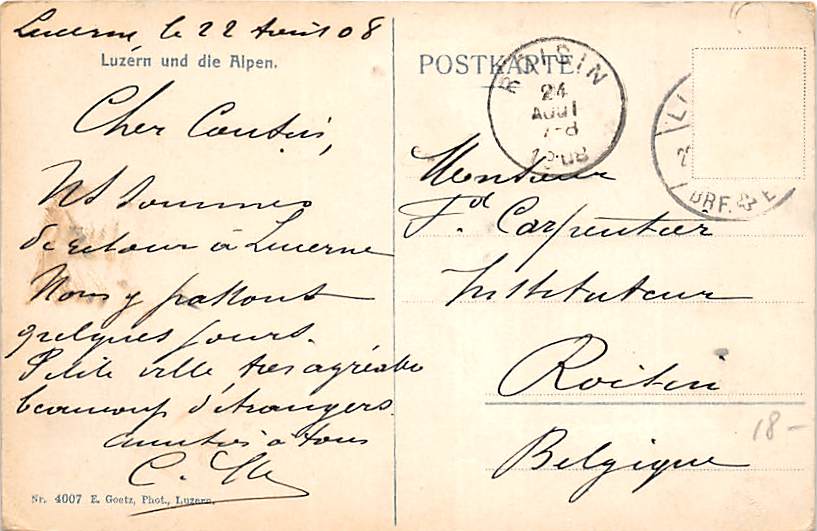 Lucerne le 22 Août 08
Luzern und die Alpen.
Cher Cousin,
Ns sommes
de retour à Lucerne
Nous y passons
quelques jours.
Petite ville très agréable
beaucoup d'étrangers.
amitiés à tous
C.
Nr. 4007 E. Goetz, Phot., Luzern.
POSTKARTE.
ROISIN
24
AOUT
7-8
1908
BRF.
Monsieur
Fd. Carpentier
Instituteur
Roisin
Belgique
18-